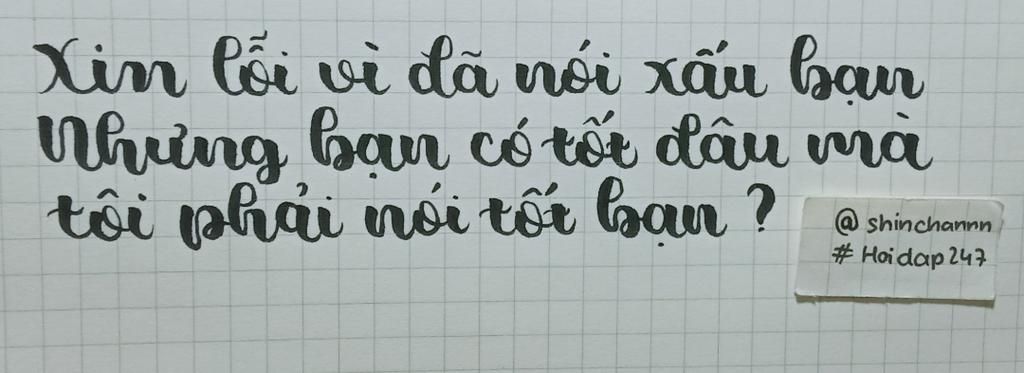 Xin lỗi vì đã nói xấu bạn
Nhưng bạn có tốt đâu mà
tôi phải nói tốt bạn ?
@ shinchannn
# Hoidap247